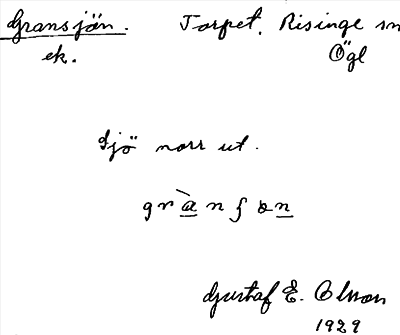 Gransjön. Torpet. Risinge sn
ek. Ögl
Sjö norr ut.
gràn∫ɔn
Gustaf E. Olsson
1929